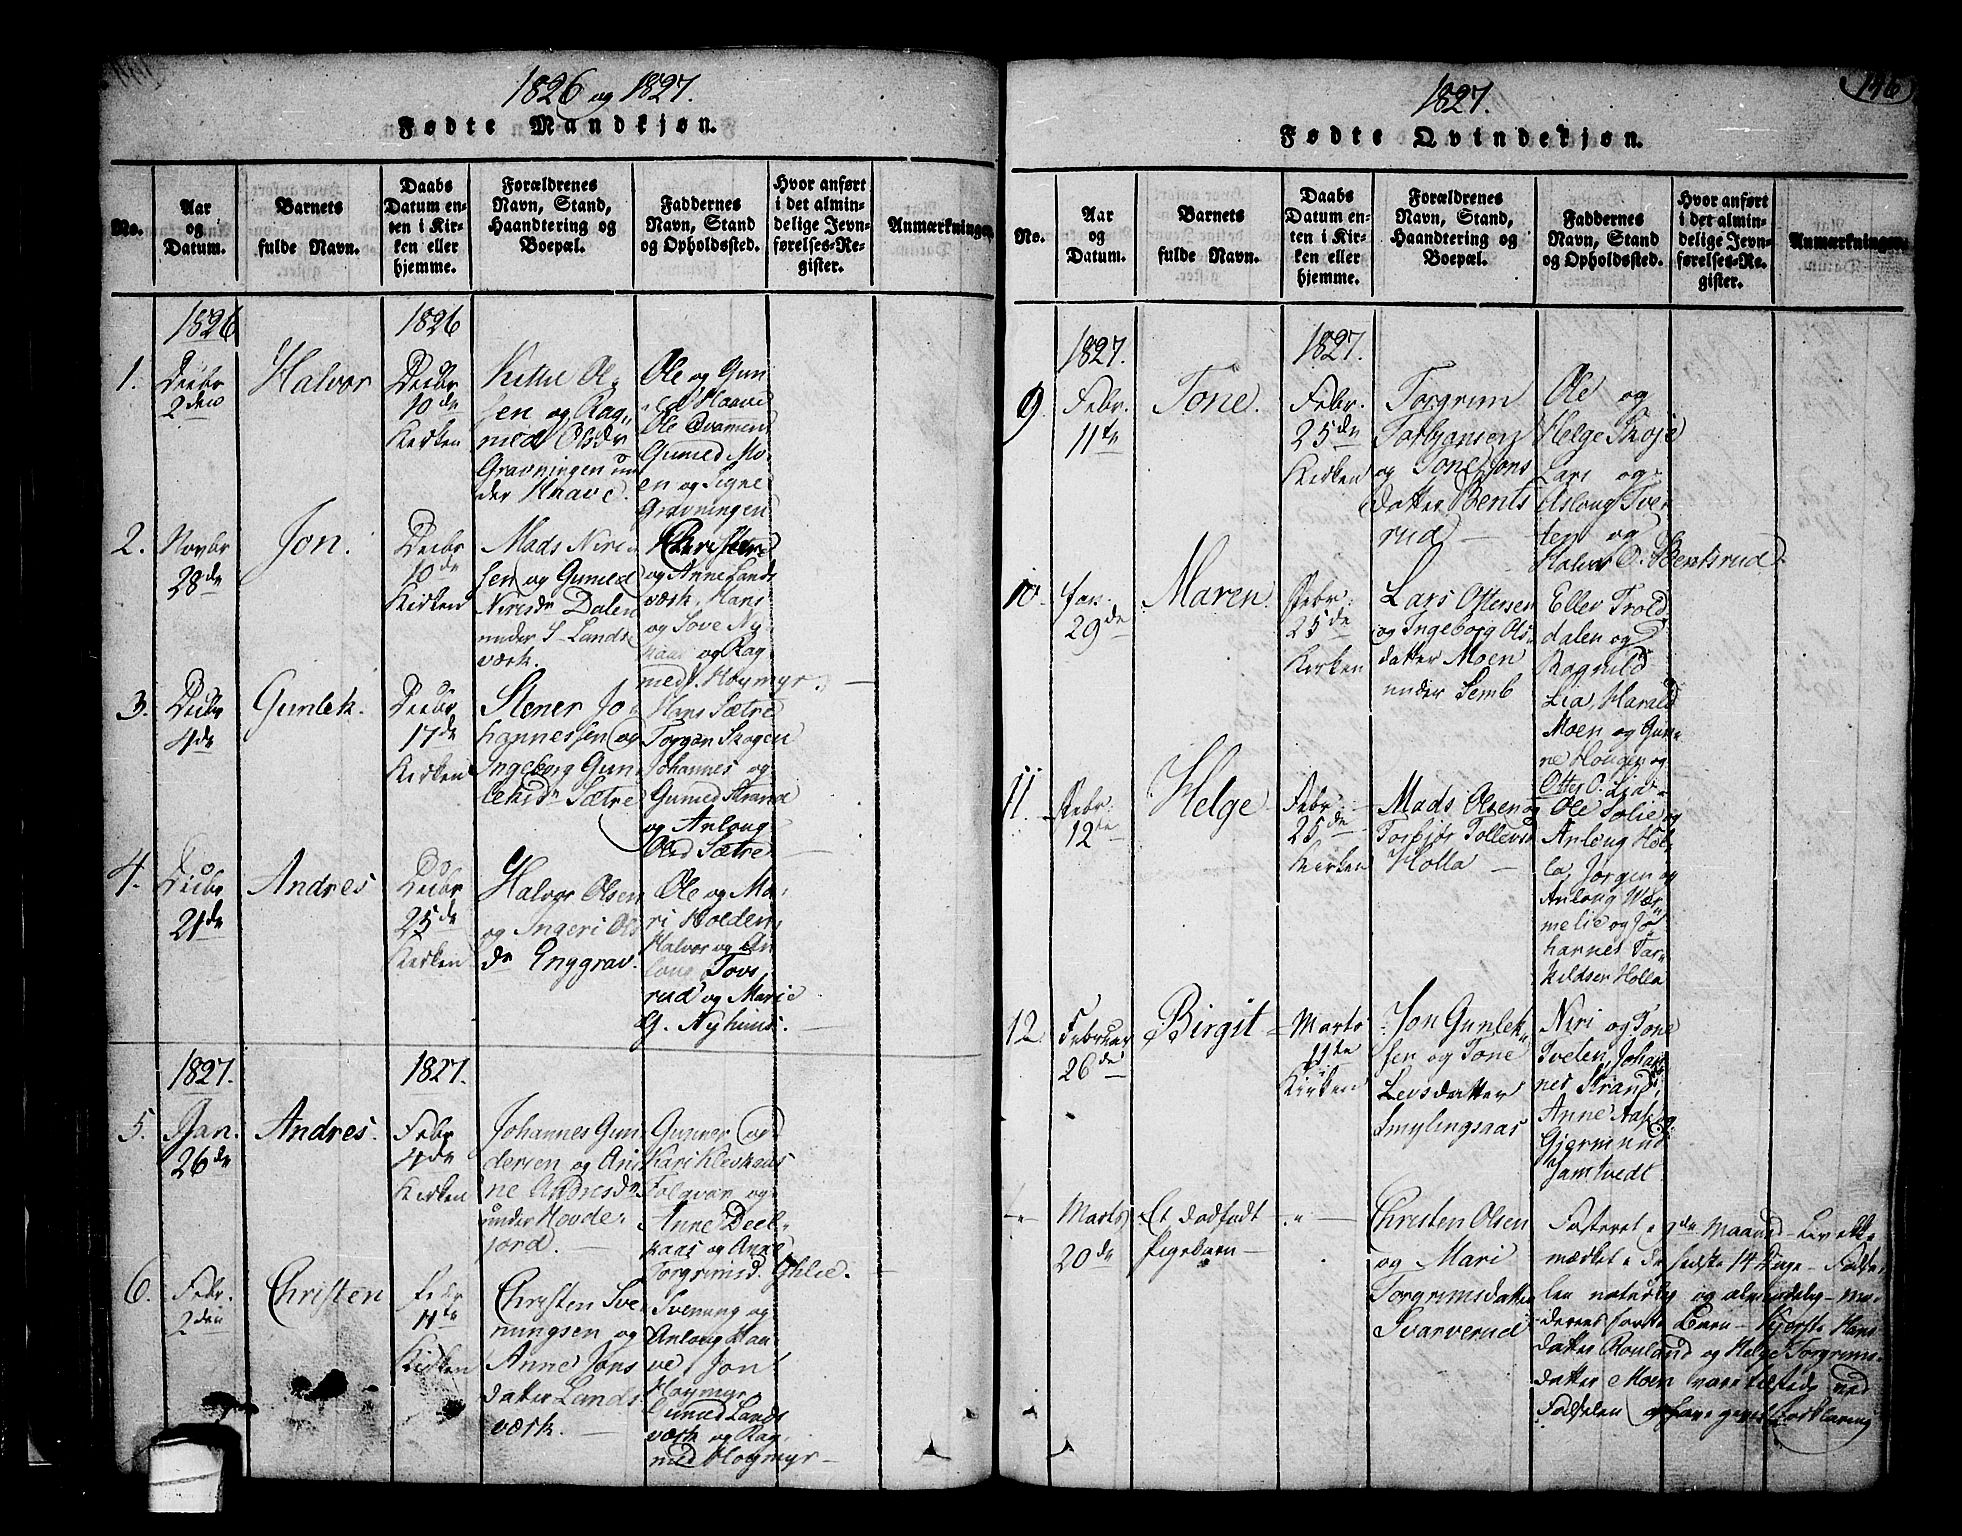 1826 og 1827.
Fødte Mandkjøn.
No.
Aar
og
Datum.
Barnets
fulde Navn.
Daabs
Datum en-
ten i Kir-
ken eller
hjemme.
Forældrenes
Navn, Stand,
Haandtering og
Boepæl.
Faddernes
Navn, Stand
og Opholdssted.
Hvor anført
i det almin-
delige Jevn-
førelses-Re-
gister.
Anmærkninger.
1826
1826
1.
Decbr
2den
Halvor
Decbr
10de
Kirken
Kittil Ol-
sen og Rag-
nild Olsdr
Gravningen un
der Haave.
Ole og Gun
Haave
Ole Evamen
Guned Mo-
en og Signe
Gravningen
2.
Novbr
28de
Jon.
Decbr
10de
Kirken
Mads Niri
sen og Guned
Niresdr Dalen
under S. Lands
værk.
Christen
og Anne Lands
værk, Hans
og Tove Ny-
kaas og Rag
ned Høymyr. —
3.
Decbr
4de
Gunlek.
Decbr
17de
Kirken
Stener Jo-
hannessen og
Ingeborg Gun
leksdr Sætre
Hans Sætre
Torgon Skogen
Johannes og
Guned Strand
og Anloug
Olsd Sætre —
4.
Decbr
21de
Andres
Decbr
25de
Kirken
Halvor Olsen
og Ingeri Ols
dr Enggrav.
Ole og Ma-
ri Holden,
Halvor og An
loug Tovs
rud og Marie
G. Nyhuus. —
1827.
1827.
5.
Jan.
26de
Andres.
Febr
4de
Kirken
Johannes Gun
dersen og An
ne Andresdr
under Hovde-
jord. —
Gunner og
Kari Klevkaas
Folqvar og
Anne Deel-
kaas og Anne
Torgrimsd. Ghlie. —
6.
Febr.
2den
Christen
Febr
11te
Kirken
Christen Sve-
nungsen og
Anne Jons
datter Lands
værk. —
Svenung og
Anloug Haa-
ve Jon
Høymyr
Guned Lands
værk og Rag-
nild Høymyr —
146
1827.
Fødte Qvindekjøn.
No.
Aar
og
Datum.
Barnets
fulde Navn.
Daabs
Datum en-
ten i Kir-
ken eller
hjemme.
Forældrenes
Navn, Stand,
Haandtering og
Boepæl.
Faddernes
Navn, Stand
og Opholdssted.
Hvor anført
i det almin-
delige Jevn-
førelses-Re-
gister.
Anmærkninger.
1827.
1827.
9.
Febr.
11te
Tone.
Febr.
25de
Kirken
Torgrim
Torbjønsen
og Tone Jons
datter Bents
rud —
Ole og
Helge Skoje
Lars og
Asloug Tve-
ten og
Halvor O. Bentsrud.
10.
Jan.
29de
Maren.
Febr.
25de
Kirken
Lars Ottersen
og Ingeborg Ols-
datter Moen
under Semb
Ellev Trold
dalen og
Ragnild
Lia, Harald
Moen og Gun-
ne Hougen og
Otter O. Lia —
11.
Febr.
12te
Helge
Febr.
25de
Kirken
Mads Olsen og
Torbjør Tollevsd
Holla —
Ole Solie og
Anloug Hol-
la, Jørgen og
Anloug Vær-
melie og Jo-
hannes Tar-
kildsen Holla
12.
Februar
26de
Birgit
Marts
11te
Kirken
Jon Gunlek-
sen og Tone
Levsdatter
Smylingsaas
Niri og Tone
Tveten, Johan-
nes Strand,
Anne Aas og
Gjermund
Jamtvedt
Marts
20de
Et dødfødt
Pigebarn —
Christen Olsen
og Mari
Torgrimsdatter
Svarverud
Fosteret 9de Maaned — Lev ikke
mærket de sidste 14 Dage — Føds-
len naturlig og almindelig — mo-
derens første Barn — Kjersti Hans
datter Rouland og Helge Torgrims-
datter Moen vare tilstede ved
Fødselen og have givet Forklaring